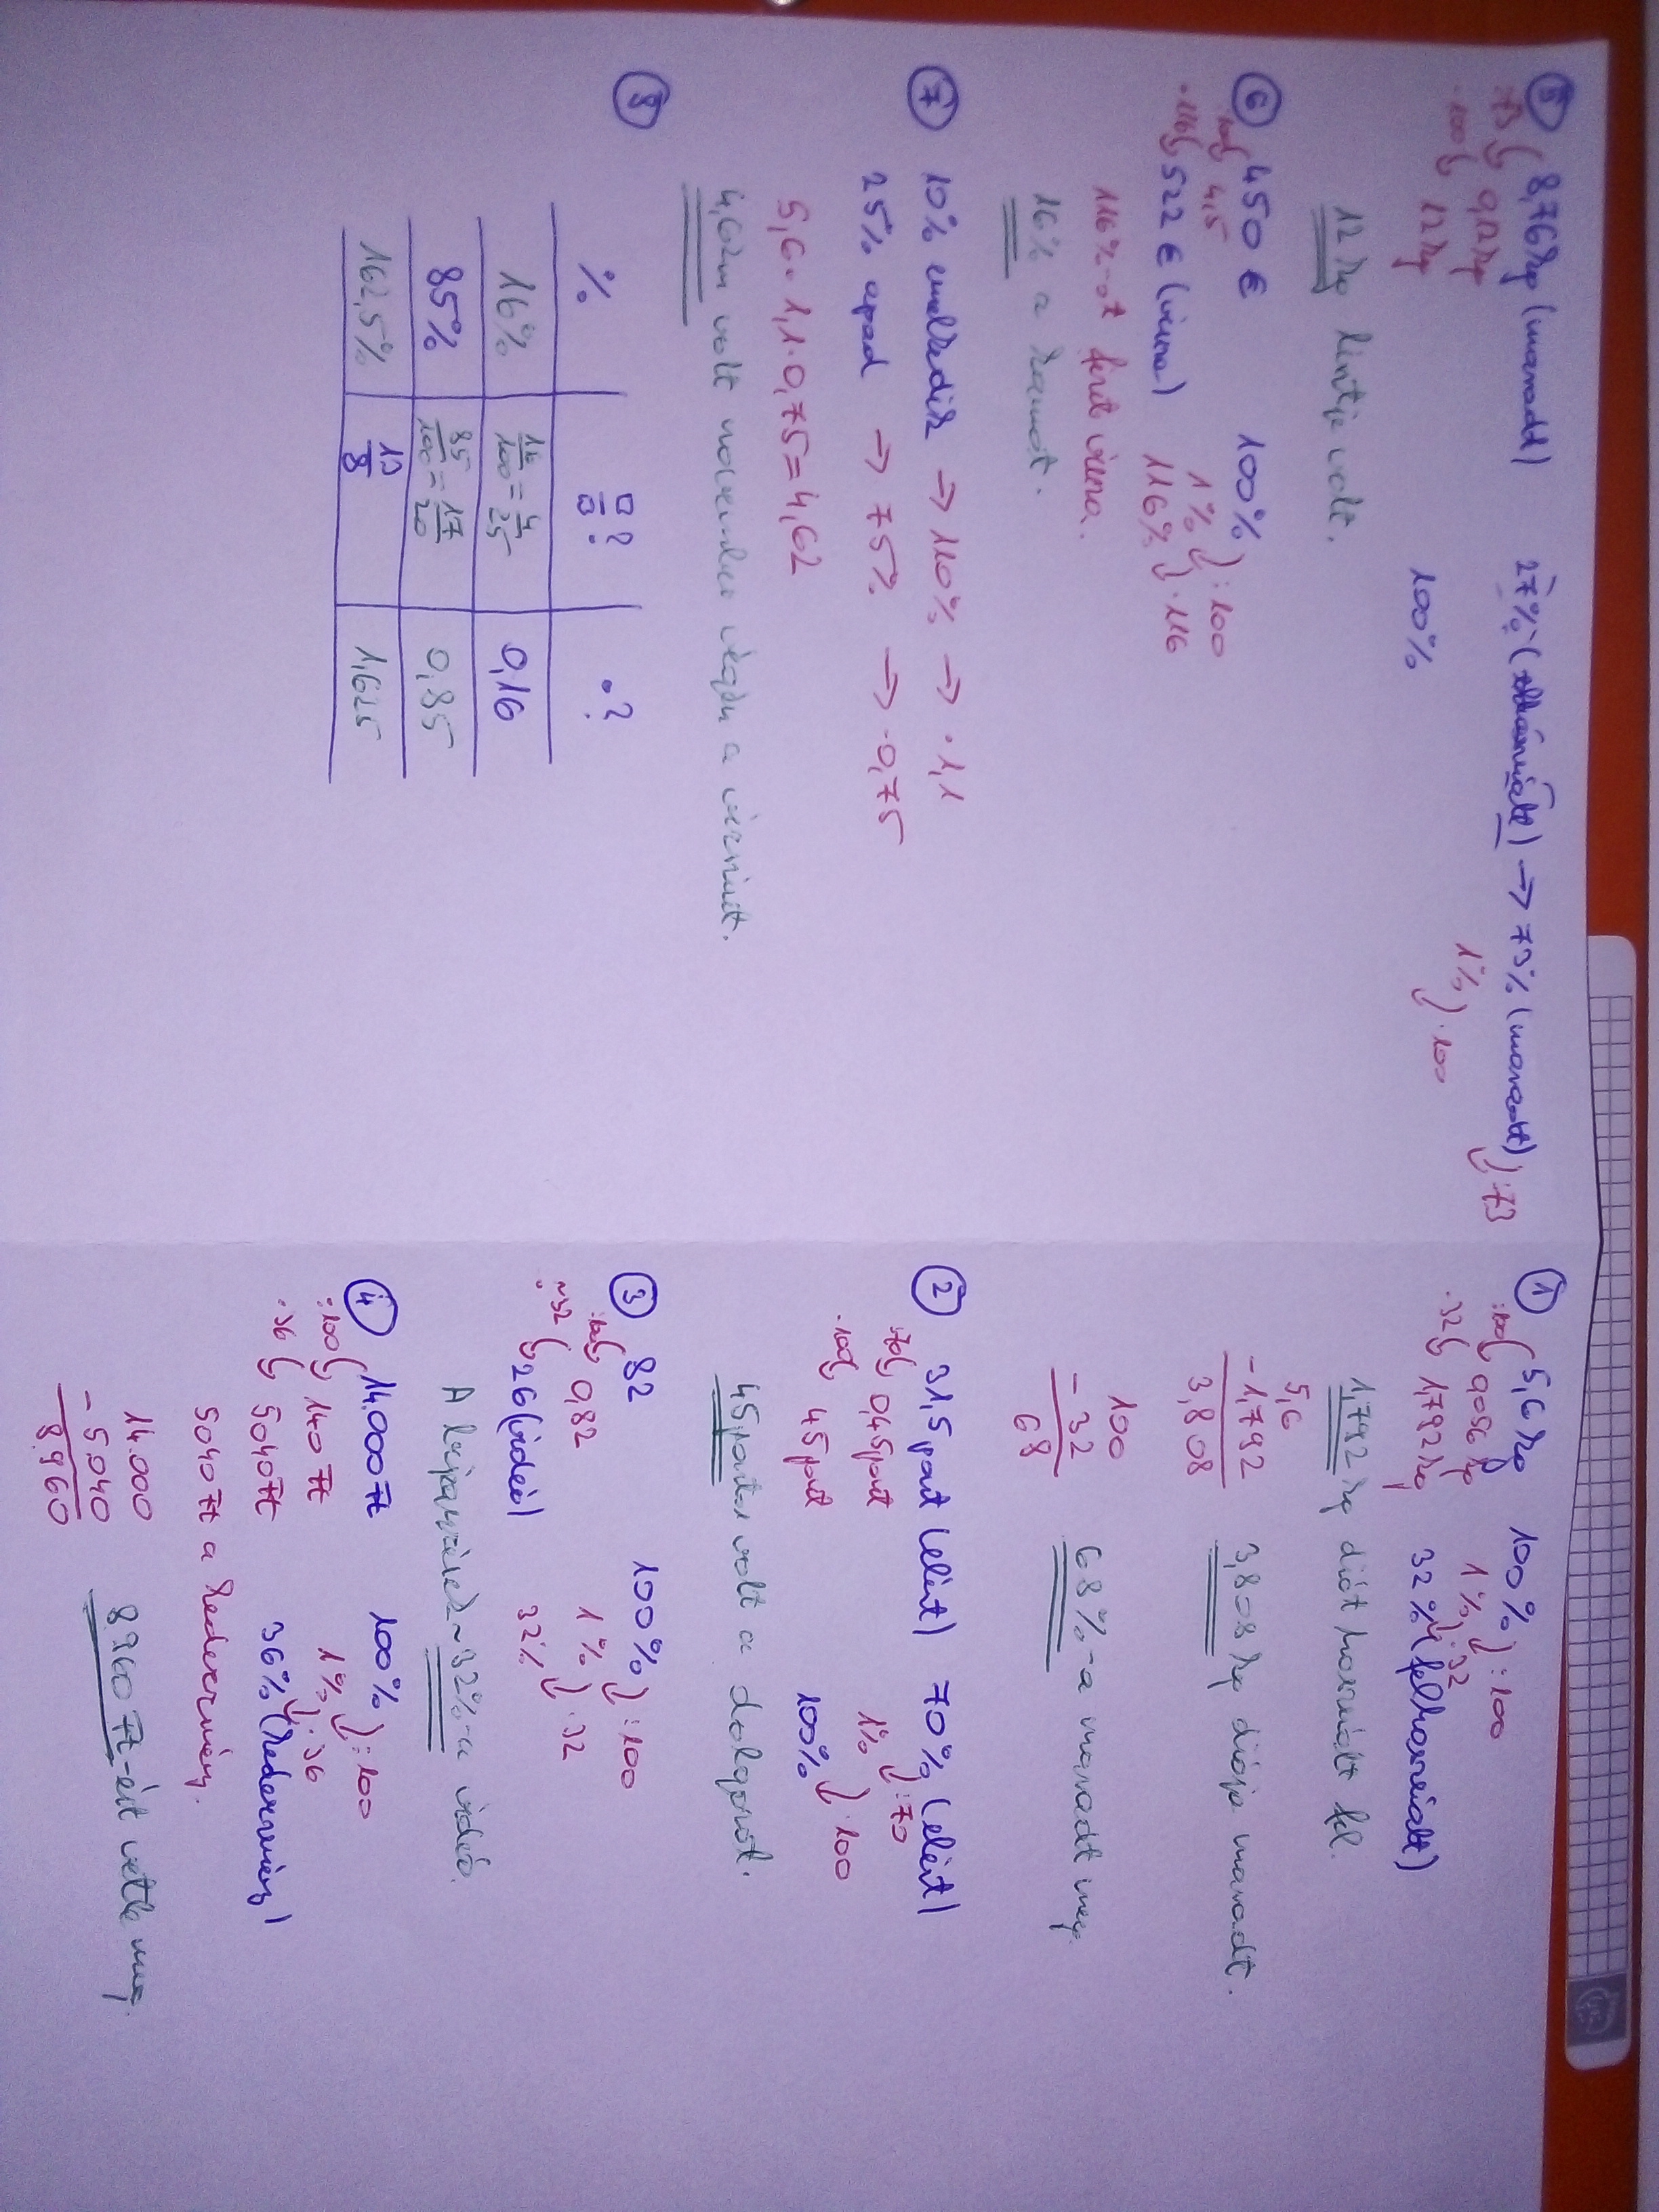 5 8,76 kg (maradt) 27% (elhasznált) → 73% (maradt) :73
:73 0,12 kg 1% ·100
·100 12 kg 100%
12 kg lisztje volt.
6 450 € 100% :100
:100 4,5 1% ·116
·116 522 € (vissza) 116%
116%-ot fizet vissza.
16% a kamat.
7 10% emelkedik → 110% → ·1,1
25% apad → 75% → ·0,75
5,6·1,1·0,75=4,62
4,62m volt november végén a vízszint.
8
% □/□? .?
16% 16/100=4/25 0,16
85% 85/100=17/20 0,85
162,5% 13/8 1,625
1 5,6 kg 100% :100
:100 0,056 kg 1% ·32
·32 1,792 kg 32% (felhasznált)
1,792 kg diót használt fel.
5,6
-1,792
3,808
3,808 kg diója maradt.
100
-32
68
68%-a maradt meg.
2 31,5 pont (elért) 70% (elért)
:70 0,45 pont 1% :70
·100 45 pont 100% ·100
45 pontos volt a dolgozat.
3 82 100% :100
:100 0,82 1% ·32
·~32 26 (videó) 32%
A ~32%-a videó.
4 14.000 Ft 100% :100
:100 140 Ft 1% ·36
·36 5040 Ft 36% (kedvezmény)
5040 Ft a kedvezmény.
14.000
-5.040
8.960
8.960 Ft-ért vette meg.